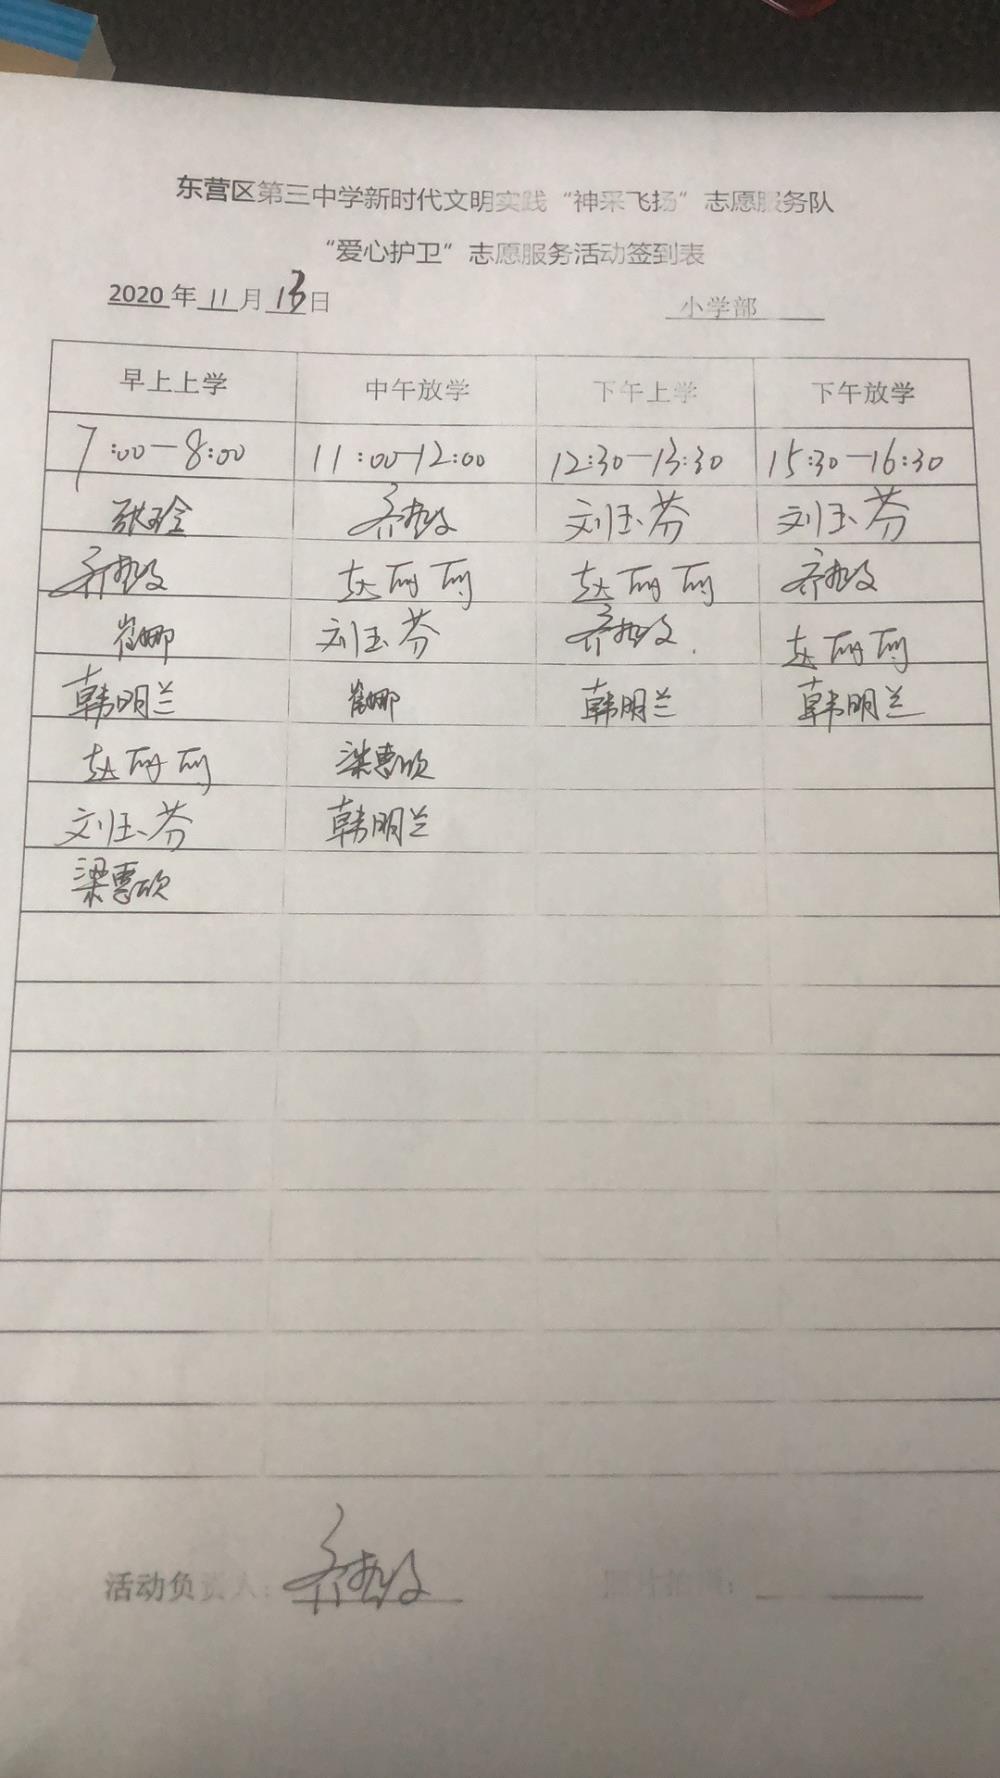 东营区第三中学新时代文明实践“神采飞扬”志愿服务队
“爱心护卫”志愿服务活动签到表
2020年11月13日 小学部
早上上学 中午放学 下午上学 下午放学
7:00-8:00 11:00-12:00 12:30-13:30 15:30-16:30
张玲 齐 刘玉芬 刘玉芬
齐 赵丽丽 赵丽丽 齐
崔娜 刘玉芬 齐 赵丽丽
韩明兰 崔娜 韩明兰 韩明兰
赵丽丽 梁惠欣
刘玉芬 韩明兰
梁惠欣
活动负责人：齐 照片拍摄：